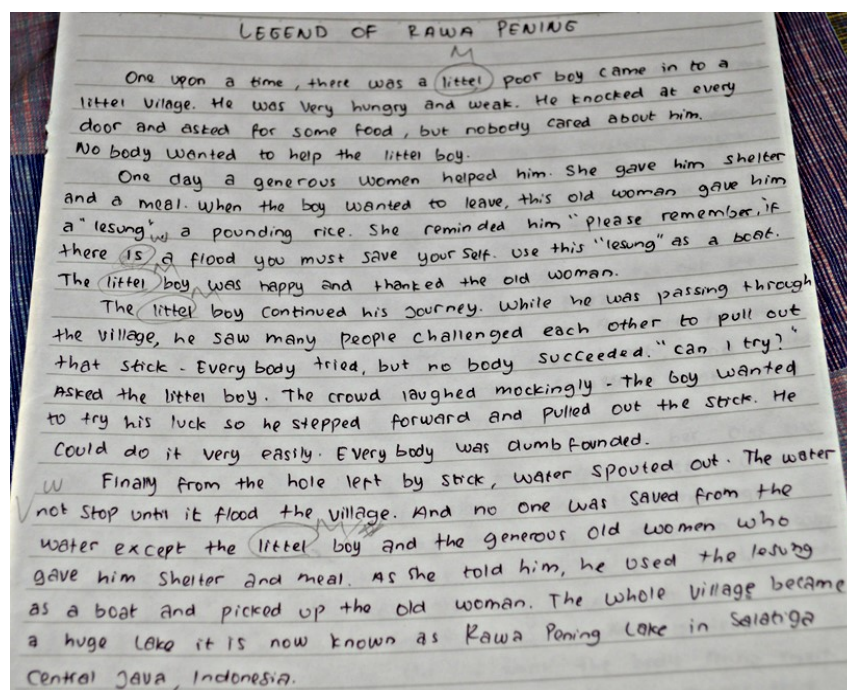 LEGEND OF RAWA PENING
M
One upon a time, there was a littel poor boy came in to a
littel vilage. He was very hungry and weak. He knocked at every
door and asked for some food, but nobody cared about him.
No body wanted to help the littel boy.
One day a generous women helped him. She gave him shelter
and a meal. When the boy wanted to leave, this old woman gave him
a "lesung" w a pounding rice. She reminded him "please remember, if
there is a flood you must save your self. use this "lesung" as a boat.
The littel boy was happy and thanked the old woman.
The littel boy continued his journey. While he was passing through
the village, he saw many people challenged each other to pull out
that stick - Every body tried, but no body succeeded. "can I try?"
Asked the littel boy. The crowd laughed mockingly - the boy wanted
to try his luck so he stepped forward and pulled out the stick. He
could do it very easily. Every body was dumb founded.
w Finaly from the hole left by stick, water spouted out. The water
not stop until it flood the village. And no one was saved from the
water except the littel boy and the generous old women who
gave him shelter and meal. As she told him, he used the lesung
as a boat and picked up the old woman. The whole village became
a huge lake it is now known as Rawa Pening Lake in Salatiga
Central Java, Indonesia.